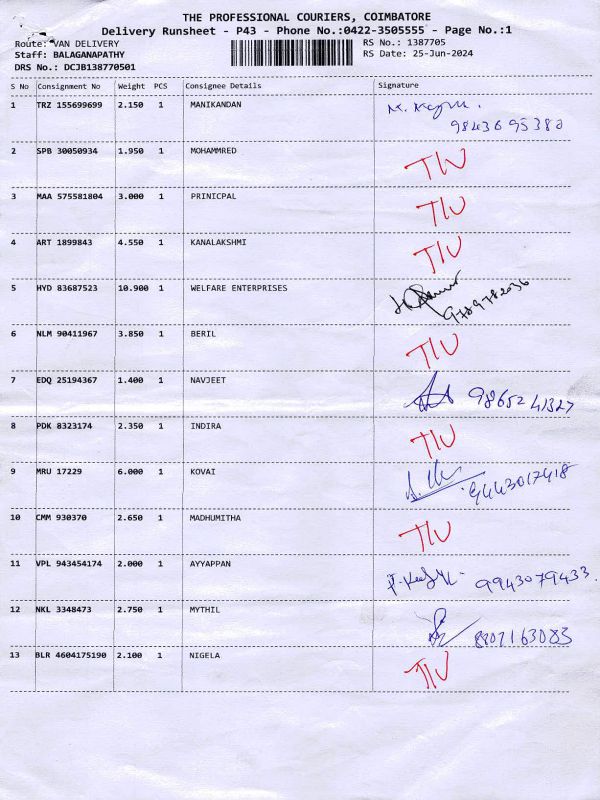 THE PROFESSIONAL COURIERS, COIMBATORE
Delivery Runsheet - P43 - Phone No.:0422-3505555 - Page No.:1
Route: VAN DELIVERY RS No.: 1387705
Staff: BALAGANAPATHY RS Date: 25-Jun-2024
DRS No.: DCJB138770501
S No Consignment No Weight PCS Consignee Details Signature
1 TRZ 155699699 2.150 1 MANIKANDAN
9843695380
2 SPB 30050934 1.950 1 MOHAMMRED TIU
3 MAA 575581804 3.000 1 PRINICPAL TIU
4 ART 1899843 4.550 1 KANALAKSHMI TIU
5 HYD 83687523 10.900 1 WELFARE ENTERPRISES 9789782036
6 NLM 90411967 3.850 1 BERIL TIU
7 EDQ 25194367 1.400 1 NAVJEET 9865241327
8 PDK 8323174 2.350 1 INDIRA TIU
9 MRU 17229 6.000 1 KOVAI 9443017418
10 CMM 930370 2.650 1 MADHUMITHA TIU
11 VPL 943454174 2.000 1 AYYAPPAN 9943079433.
12 NKL 3348473 2.750 1 MYTHIL 8807163083
13 BLR 4604175190 2.100 1 NIGELA TIU